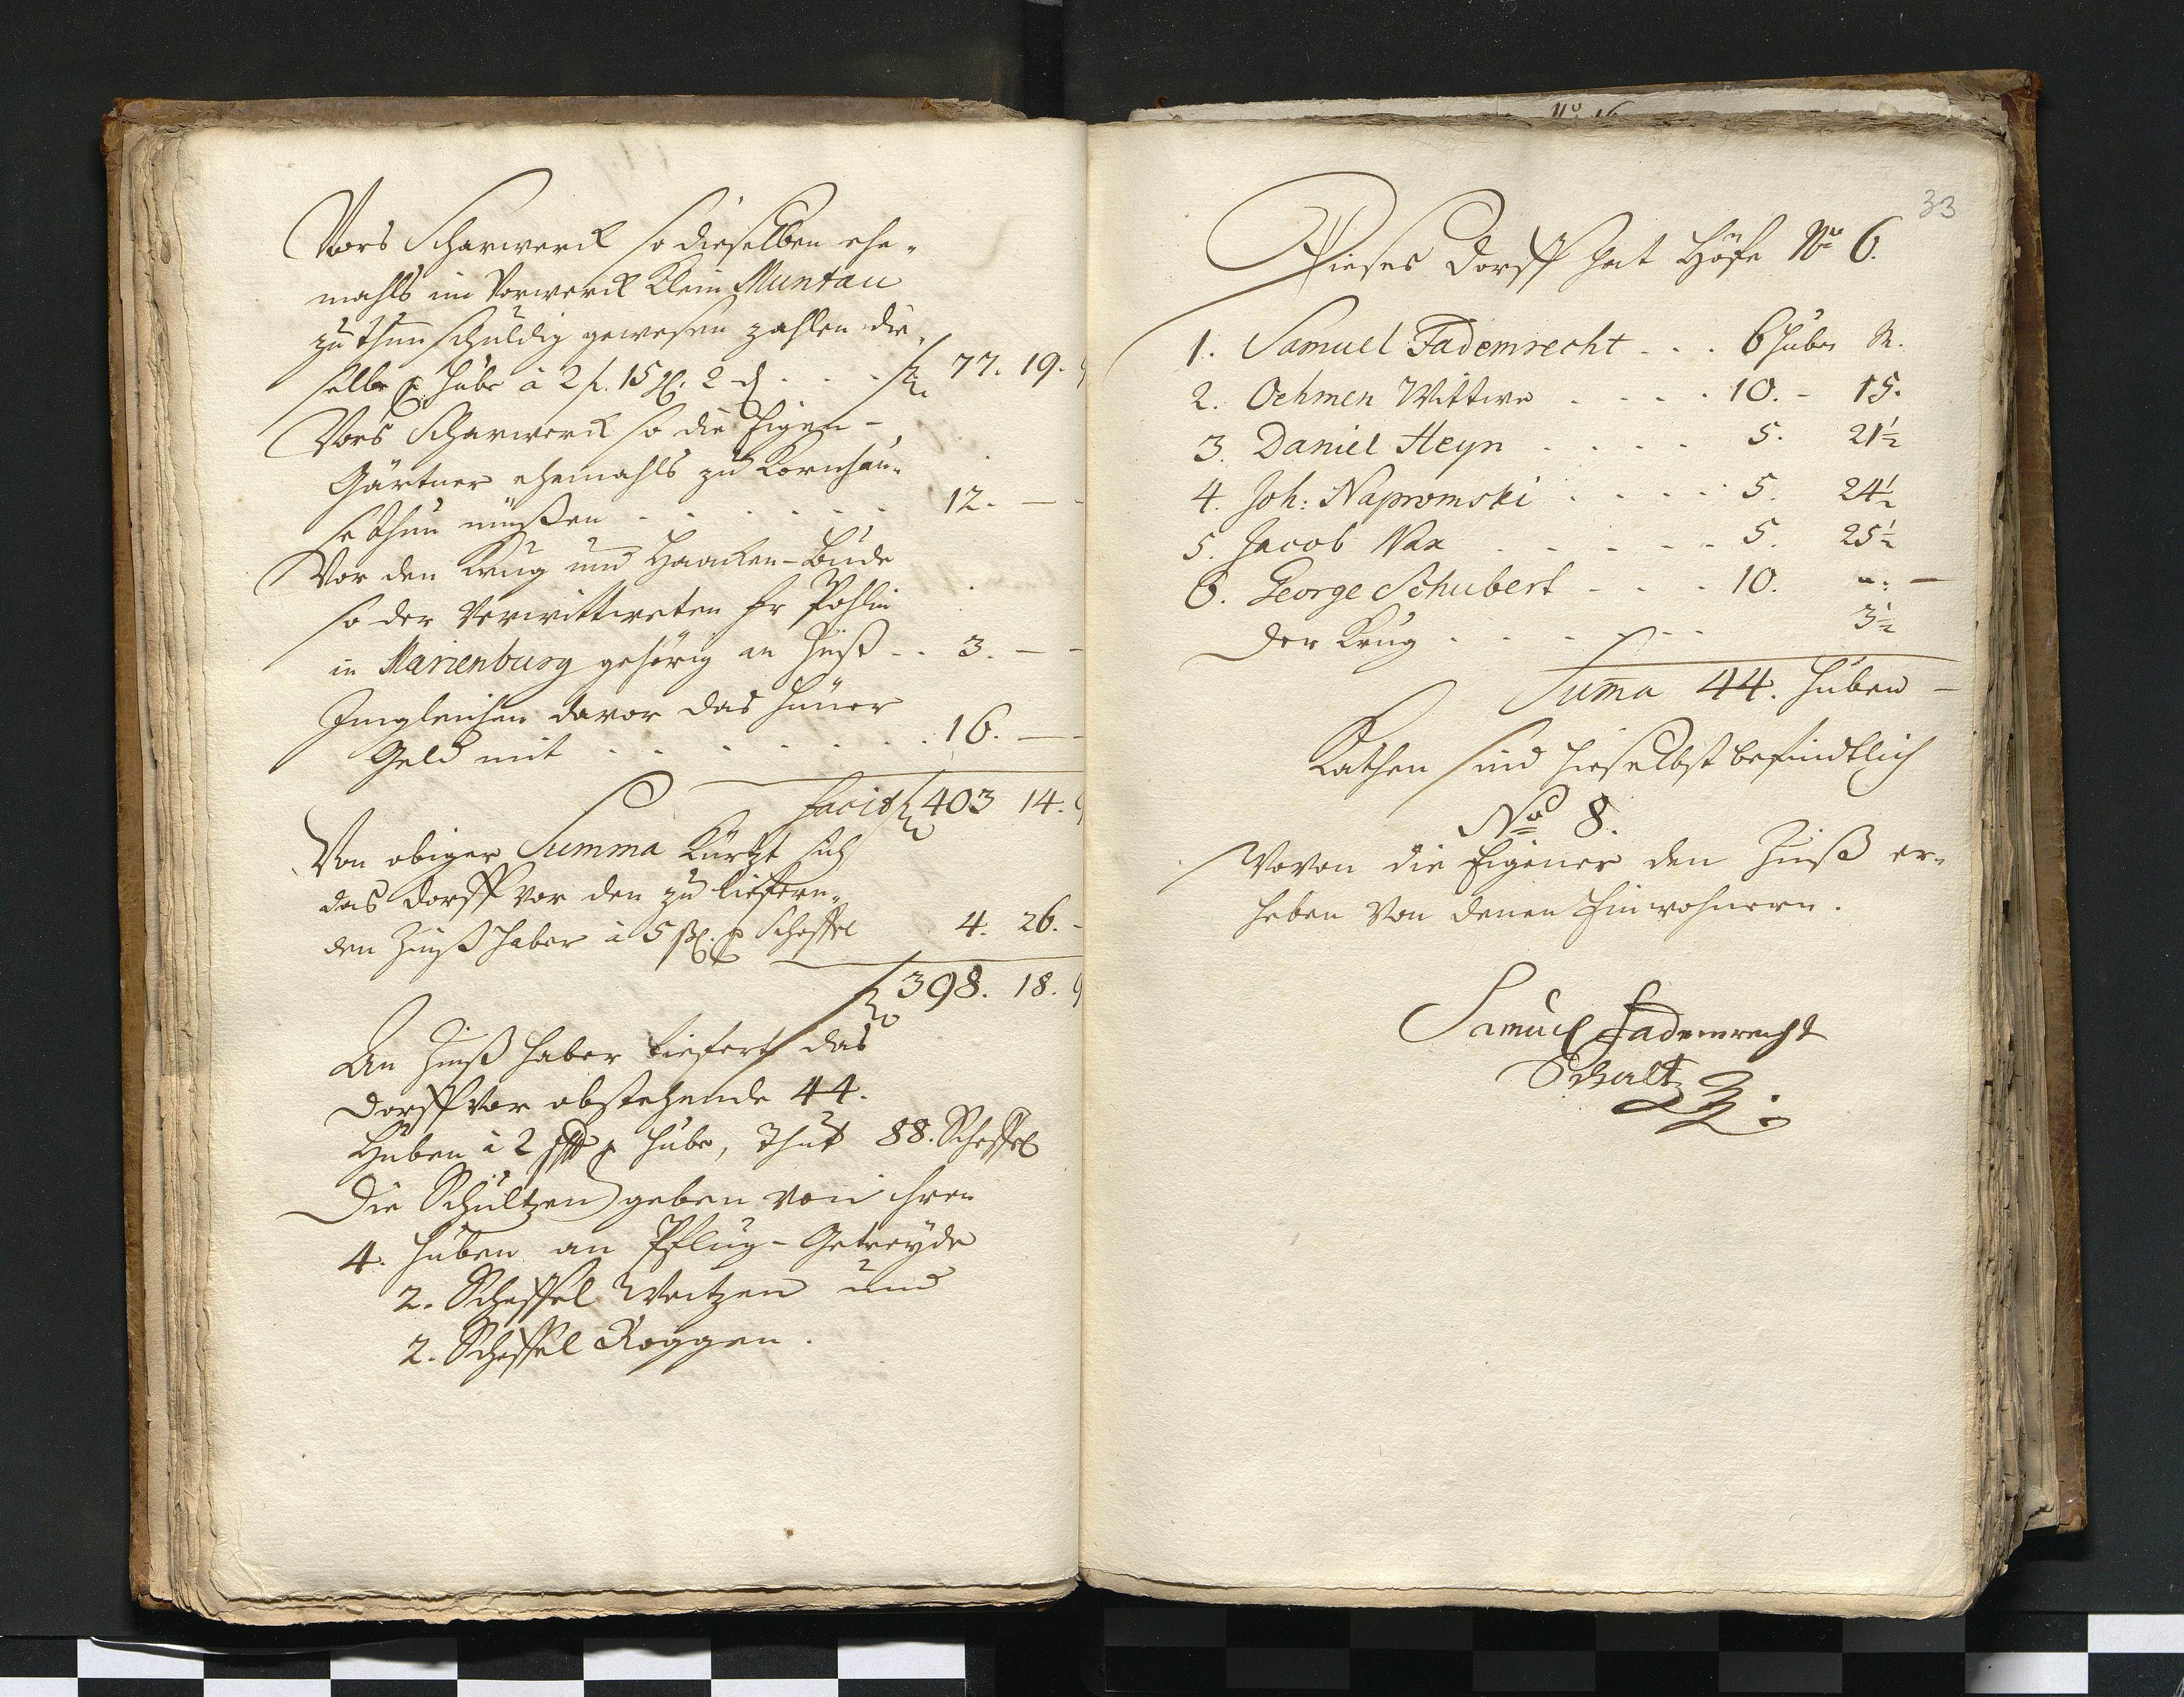 Vors Scharwerck so dieselben ehe-
mahls im Vorwerck Klein Muntau
zu thun schuldig gewesen zahlen die-
selbe p Hube à 2 f. 15 gl. 2 d . . . 77. 19.
Vors Scharwerck so die Eigen-
Gärtner ehemahls zu Kornhau-
se thun müßen . . . . . . 12. —
Vor den Krug und Haacken-Bude
so der Verwittweten Fr Pohlin
in Marienburg gehörig an Zinß . . 3. —
Imgleichen davor das Hüner
Geld mit . . . . . . . 16. —
facit 403 14.
Von obiger Summa Kürtzt sich
das Dorff vor den zu liefern-
den Zinß haber à 5 gl. p Scheffel 4. 26. -
398. 18.
An Zinß haber liefert das
Dorff vor obstehende 44.
Huben à 2 Schff p Hube, thut 88. Scheffel
Die Schultzen geben von ihren
4. Huben an Pflug-Getreyde
2. Scheffel Weitzen und
2. Scheffel Roggen.
33
Dieses Dorff hat Höfe No 6.
1. Samuel Fademrecht . . . 6 Huben M.
2. Oehmen Wittwe . . . . 10. - 15.
3. Daniel Heyn . . . . 5. 21½
4. Joh: Napromski . . . . 5. 24½
5. Jacob Nax . . . . . 5. 25½
6. George Schubert . . . 10. -. —
Der Krug . . . . . . 3½
Suma 44. Huben —
Kathen sind hieselbst befindtlich
No 8.
Wovon die Eigener den Zinß er-
heben von denen Einwohnern.
Samuel Fademrecht
Schultz